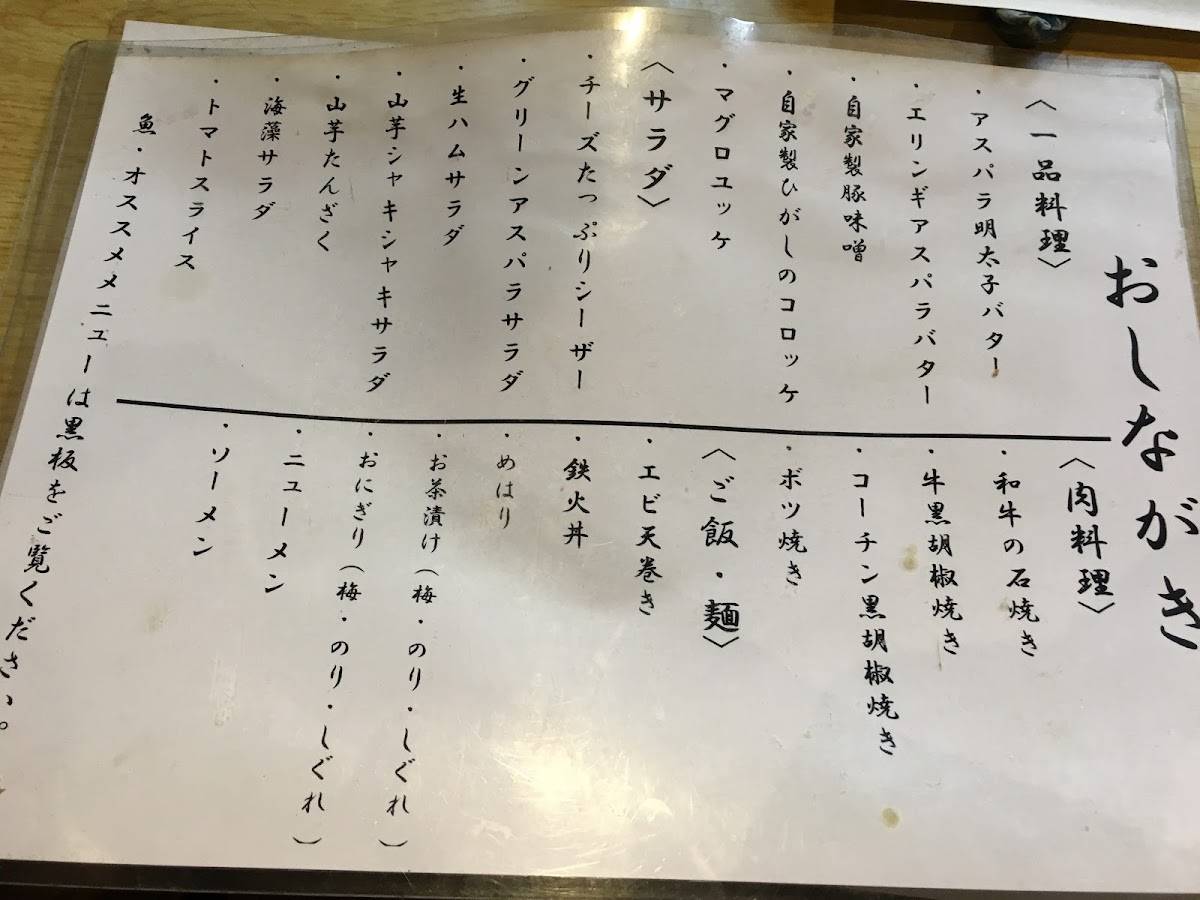 おしながき
〈一品料理〉
・アスパラ明太子バター
・エリンギアスパラバター
・自家製豚味噌
・自家製ひがしのコロッケ
・マグロユッケ
〈サラダ〉
・チーズたっぷりシーザー
・グリーンアスパラサラダ
・生ハムサラダ
・山芋シャキシャキサラダ
・山芋たんざく
・海藻サラダ
・トマトスライス
〈肉料理〉
・和牛の石焼き
・牛黒胡椒焼き
・コーチン黒胡椒焼き
・ボツ焼き
〈ご飯・麺〉
・エビ天巻き
・鉄火丼
・めはり
・お茶漬け(梅・のり・しぐれ)
・おにぎり(梅・のり・しぐれ)
・ニューメン
・ソーメン
魚・オススメメニューは黒板をご覧ください。